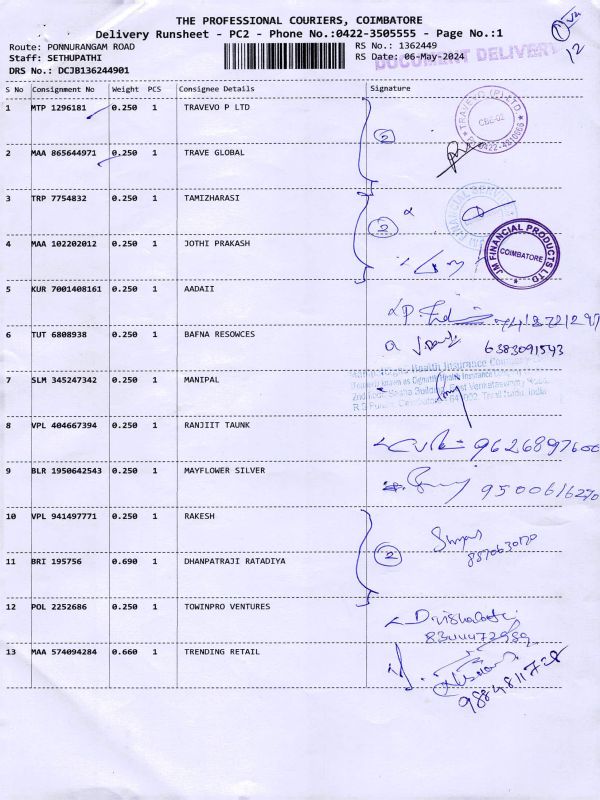 THE PROFESSIONAL COURIERS, COIMBATORE
Delivery Runsheet - PC2 - Phone No.:0422-3505555 - Page No.:1
Route: PONNURANGAM ROAD
Staff: SETHUPATHI
DRS No.: DCJB136244901
RS No.: 1362449
RS Date: 06-May-2024
DOCUMENT DELIVERY
12
S No Consignment No Weight PCS Consignee Details Signature
1 MTP 1296181 0.250 1 TRAVEVO P LTD
TRAVEVO (P) LTD
CBE-02
2 MAA 865644971 0.250 1 TRAVE GLOBAL
3 TRP 7754832 0.250 1 TAMIZHARASI
2
4 MAA 102202012 0.250 1 JOTHI PRAKASH
JM FINANCIAL PRODUCTS LTD
COIMBATORE
5 KUR 7001408161 0.250 1 AADAII
6 TUT 6808938 0.250 1 BAFNA RESOWCES
6383091543
7 SLM 345247342 0.250 1 MANIPAL
Health Insurance Company
8 VPL 404667394 0.250 1 RANJIIT TAUNK
9626897600
9 BLR 1950642543 0.250 1 MAYFLOWER SILVER
9500616270
10 VPL 941497771 0.250 1 RAKESH
2
11 BRI 195756 0.690 1 DHANPATRAJI RATADIYA
12 POL 2252686 0.250 1 TOWINPRO VENTURES
8344472989
13 MAA 574094284 0.660 1 TRENDING RETAIL
9884811728